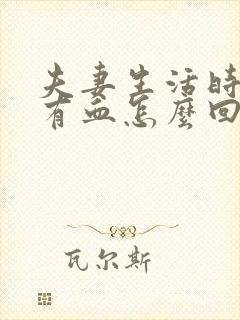 夫妻生活时
有血怎麼回
瓦尔斯